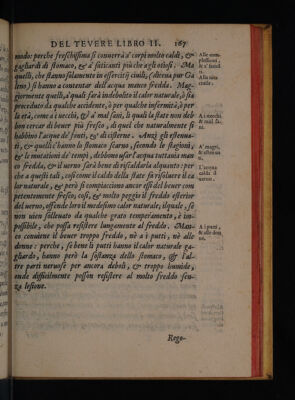 DEL TEVERE LIBRO II. 167
modo: perche freschissima si conuerrà a' corpi molto caldi, &
gagliardi di stomaco, & a' faticanti più che agli otiosi. Ma
quelli, che stanno solamente in essercitij ciuili, (diceua pur Ga
leno) si hanno a contentar dell'acqua manco fredda. Mag-
giormente quelli, a' quali sarà indebolito il calor naturale, ò sia
proceduto da qualche accidente, ò per qualche infermità, ò per
la età, come a i vecchi, & a' mal sani, li quali la state non deb
bon cercar di bouer più fresco, di quel che naturalmente si
habbino l'acque de' fonti, & di cisterne. Anzi gli estenua-
ti, & quelli c'hanno lo stomaco scarno, secondo le stagioni,
& le mutationi de' tempi, debbono usar l'acqua tutta uia man
co fredda, & il uerno sarà bene di riscaldarla alquanto: per
che a questi tali, così come il caldo della state fa risoluere il ca
lor naturale, & però si compiacciono ancor essi del bouer con
petentemente fresco; così, & molto peggio il freddo esterior
del uerno, offende loro il medesimo calor naturale, il quale, se
non uien solleuato da qualche grato temperamento, è im-
possibile, che possa resistere lungamente al freddo. Man-
co conuiene il bouer troppo freddo, nè a i putti, nè alle
donne: perche, se bene li putti hanno il calor naturale ga-
gliardo, hanno però la sostanza dello stomaco, & l'al-
tre parti neruose per ancora deboli, & troppo humide,
onde difficilmente posson resistere al molto freddo sen-
za lesione.
Alle com
plessioni,
Alla uita
ciuile.
Ai vecchi
& mal sa
ni.
A' magri,
& estenua
ti.
L'acqua
calda il
uerno.
A i putti
& alle don
ne.
Rego-